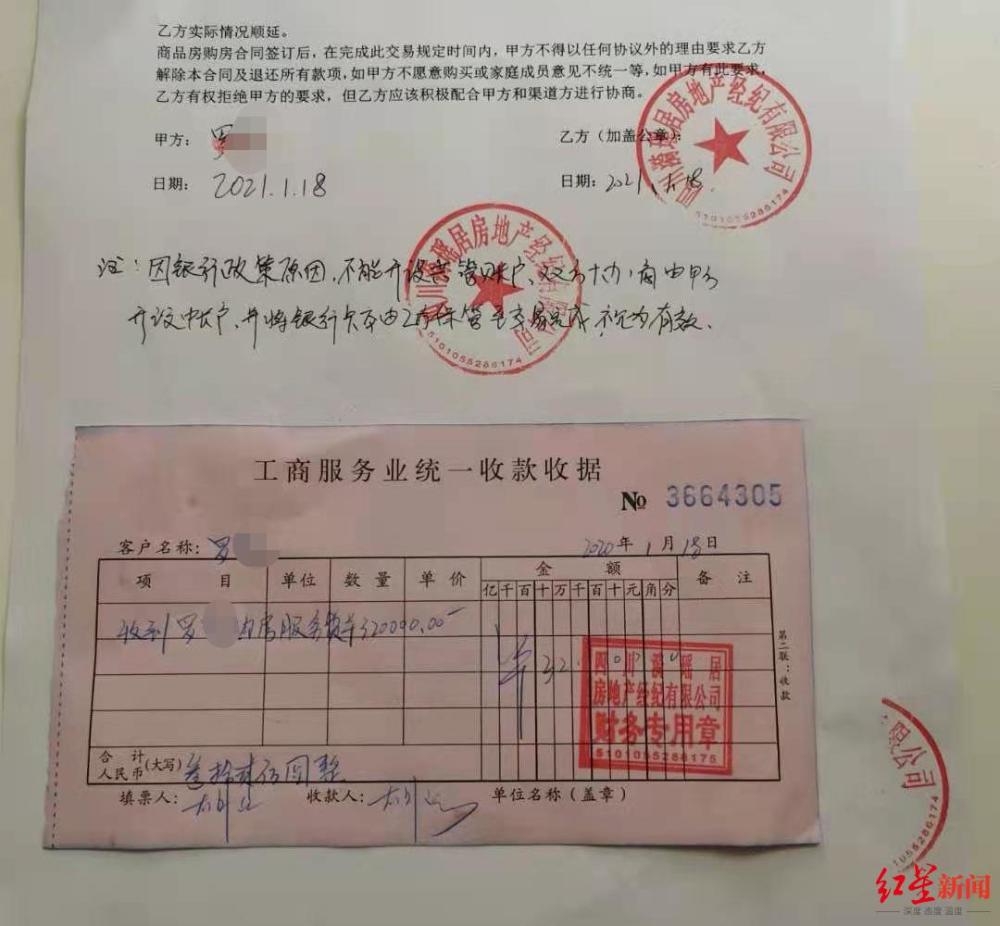 乙方实际情况顺延。
商品房购房合同签订后，在完成此交易规定时间内，甲方不得以任何协议外的理由要求乙方
解除本合同及退还所有款项，如甲方不愿意购买或家庭成员意见不统一等，如甲方有此要求，
乙方有权拒绝甲方的要求，但乙方应该积极配合甲方和渠道方进行协商。
甲方：罗 乙方（加盖公章）：
日期：2021.1.18 日期：2021
房地产经纪有限公司
5101055286174
瑶居房地产经纪有限公司
5101055286174
注：因银行政策原因，不能开设共管账户，双方协商由甲方
开设账户，并将银行卡交由乙方保管至交易完成，视为有效.
工商服务业统一收款收据
№ 3664305
客户名称：罗 2020年1月18日
项目 单位 数量 单价 金额 备注
亿 千 百 十 万 千 百 十 元 角 分
收到罗 购房服务费¥320000.00
¥ 32
第二联：收款
四川满瑶居
房地产经纪有限公司
财务专用章
5101055286175
合计
人民币（大写）叁拾贰 圆整
填票人： 收款人： 单位名称（盖章）
限公司
055286174
红星新闻
深度 态度 温度